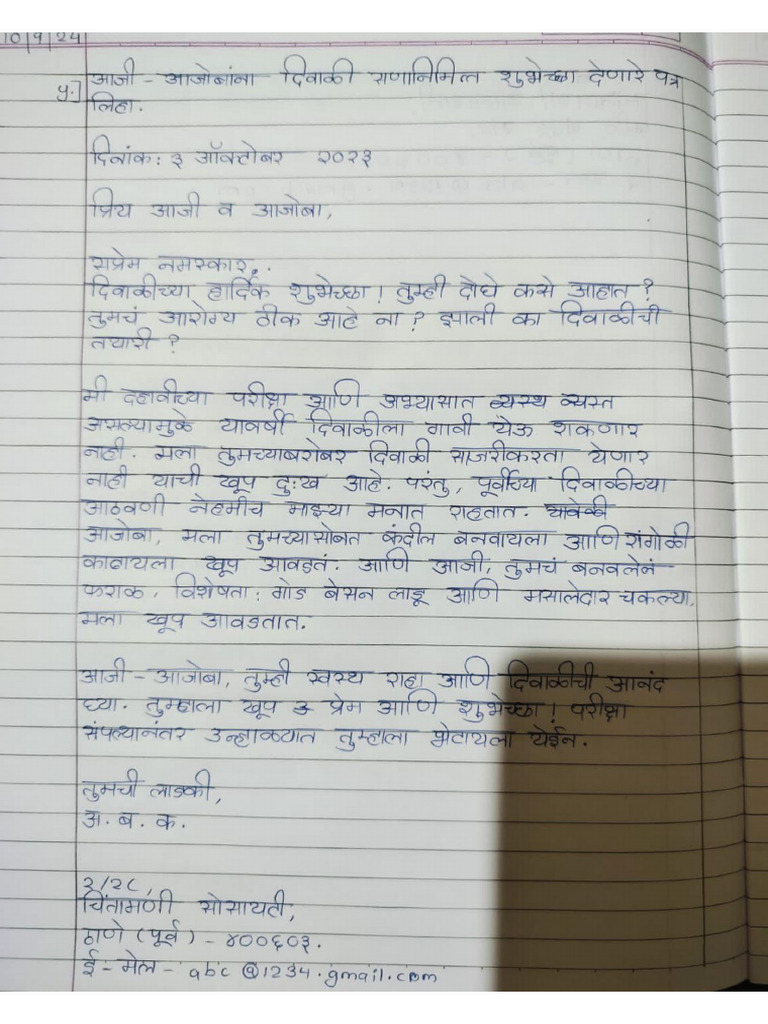 10/9/24
५.] आजी - आजोबांना दिवाळी सणानिमित्त शुभेच्छा देणारे पत्र
लिहा.
दिनांक: ३ ऑक्टोबर २०२३
प्रिय आजी व आजोबा,
सप्रेम नमस्कार,
दिवाळीच्या हार्दिक शुभेच्छा! तुम्ही दोघे कसे आहात?
तुमचं आरोग्य ठीक आहे ना? झाली का दिवाळीची
तयारी?
मी दहावीच्या परीक्षा आणि अभ्यासात व्यस्थ व्यस्त
असल्यामुळे यावर्षी दिवाळीला गावी येऊ शकणार
नाही. मला तुमच्याबरोबर दिवाळी साजरीकरता येणार
नाही याची खूप दुःख आहे. परंतु, पूर्वीच्या दिवाळीच्या
आठवणी नेहमीच माझ्या मनात राहतात. यावेळी
आजोबा, मला तुमच्यासोबत कंदील बनवायला आणि रांगोळी
काढायला खूप आवडतं. आणि आजी, तुमचं बनवलेनं
फराळ, विशेषता: गोड बेसन लाडू आणि मसालेदार चकल्या,
मला खूप आवडतात.
आजी - आजोबा, तुम्ही स्वस्थ राहा आणि दिवाळीची आनंद
घ्या. तुम्हाला खूप प्रेम आणि शुभेच्छा! परीक्षा
संपल्यानंतर उन्हाळ्यात तुम्हाला भेटायला येईन.
तुमची लाडकी,
अ. ब. क.
२/२८,
चिंतामणी सोसायटी,
ठाणे (पूर्व) - ४००६०३.
ई - मेल - abc@1234.gmail.com